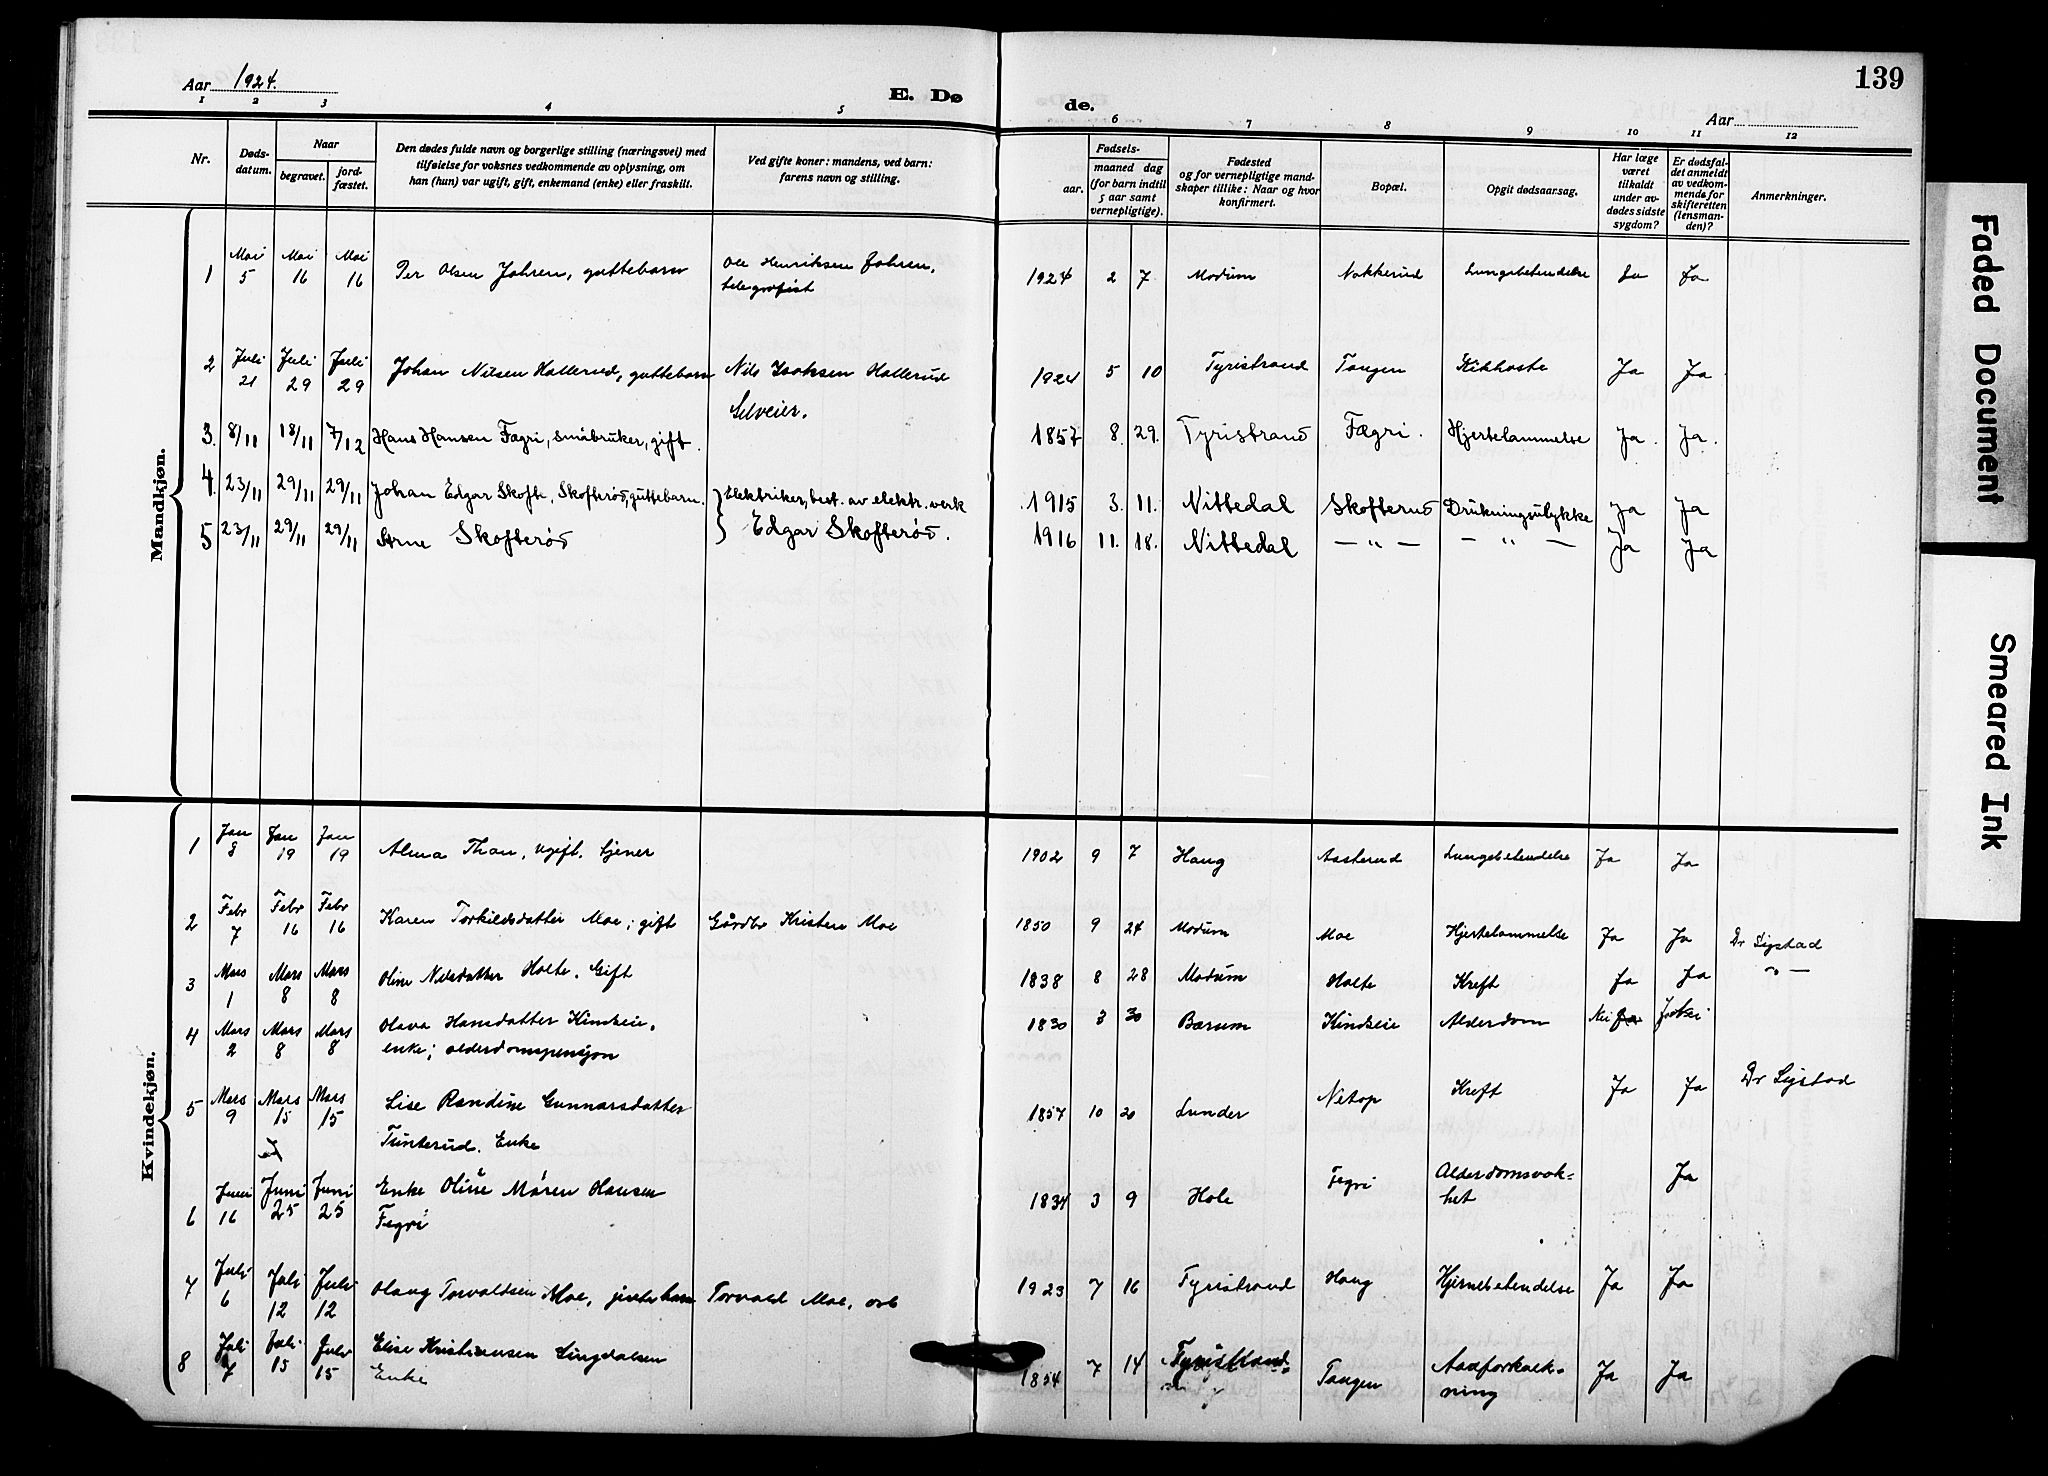 Aar 1924.
E. Døde.
139
Aar
1 2 3 4 5 6 7 8 9 10 11 12
Nr.
Døds-
datum.
Naar
begravet.
jord-
fæstet.
Den dødes fulde navn og borgerlige stilling (næringsvei) med
tilføielse for voksnes vedkommende av oplysning, om
han (hun) var ugift, gift, enkemand (enke) eller fraskilt.
Ved gifte koner: mandens, ved barn:
farens navn og stilling.
Fødsels-
aar. maaned dag
(for barn indtil
5 aar samt
vernepligtige).
Fødested
og for vernepligtige mand-
skaper tillike: Naar og hvor
konfirmert.
Bopæl.
Opgit dødsaarsag.
Har læge
været
tilkaldt
under av-
dødes sidste
sygdom?
Er dødsfal-
det anmeldt
av vedkom-
mende for
skifteretten
(lensman-
den)?
Anmerkninger.
Mandkjøn.
1 Mai 5 Mai 16 Mai 16 Per Olsen Johren, guttebarn Ole Henriksen Johren, 1924 2 7 Modum Nakkerud Lungebetendelse Ja Ja
telegrafist
2 Juli 21 Juli 29 Juli 29 Johan Nilsen Hallerud, guttebarn Nils Isaksen Hallerud 1924 5 10 Tyristrand Tangen Kikhoste Ja Ja
Selveier.
3. 8/11 18/11 7/12 Hans Hansen Fægri, småbruker, gift. 1857 8. 29. Tyristrand Fægri. Hjertelammelse Ja. Ja.
4. 23/11 29/11 29/11 Johan Edgar Skofte, Skofterød, guttebarn. Elektriker, best. av elektr. verk 1915 3. 11. Nittedal Skofterud Drukningsulykke Ja Ja
5 23/11 29/11 29/11 Arne Skofterød Edgar Skofterød. 1916 11. 18. Nittedal — „ — — „ — Ja Ja
Kvindekjøn.
1 Jan 8 Jan 19 Jan 19 Alma Thon, ugift, tjener 1902 9 7 Haug Aasterud Lungebetendelse Ja Ja
2 Febr 7 Febr 16 Febr 16 Karen Torkildsdatter Moe; gift Gårdbr Kristen Moe 1850 9 24 Modum Moe Hjertelammelse Ja Ja Dr Sigstad
3 Mars 1 Mars 8 Mars 8 Oline Nilsdatter Holte. Gift 1838 8 28 Modum Holte Kreft Ja Ja „ —
4 Mars 2 Mars 8 Mars 8 Olava Hansdatter Kindseie, 1830 3 30 Bærum Kindseie Alderdom Nei Ja Ja Nei
enke; alderdomspensjon
5 Mars 9 Mars 15 Mars 15 Lise Randine Gunnarsdatter 1857 10 20 Lunder Netop Kreft Ja Ja Dr Sigstad
Tunterud. Enke
6 Juni 16 Juni 25 Juni 25 Enke Oline Maren Hansen 1834 3 9 Hole Fegri Alderdomsvak-
het Ja
Fegri
7 Juli 6 Juli 12 Juli 12 Olaug Torvaldsen Moe, pikebarn Torvald Moe, arb 1923 7 16 Tyristrand Haug Hjernebetendelse Ja Ja
8 Juli 7 Juli 15 Juli 15 Elise Kristiansen Lingdalsen 1854 7 14 Tyristrand Tangen Aareforkalk-
ning Ja Ja
Enke
Faded Document
Smeared Ink